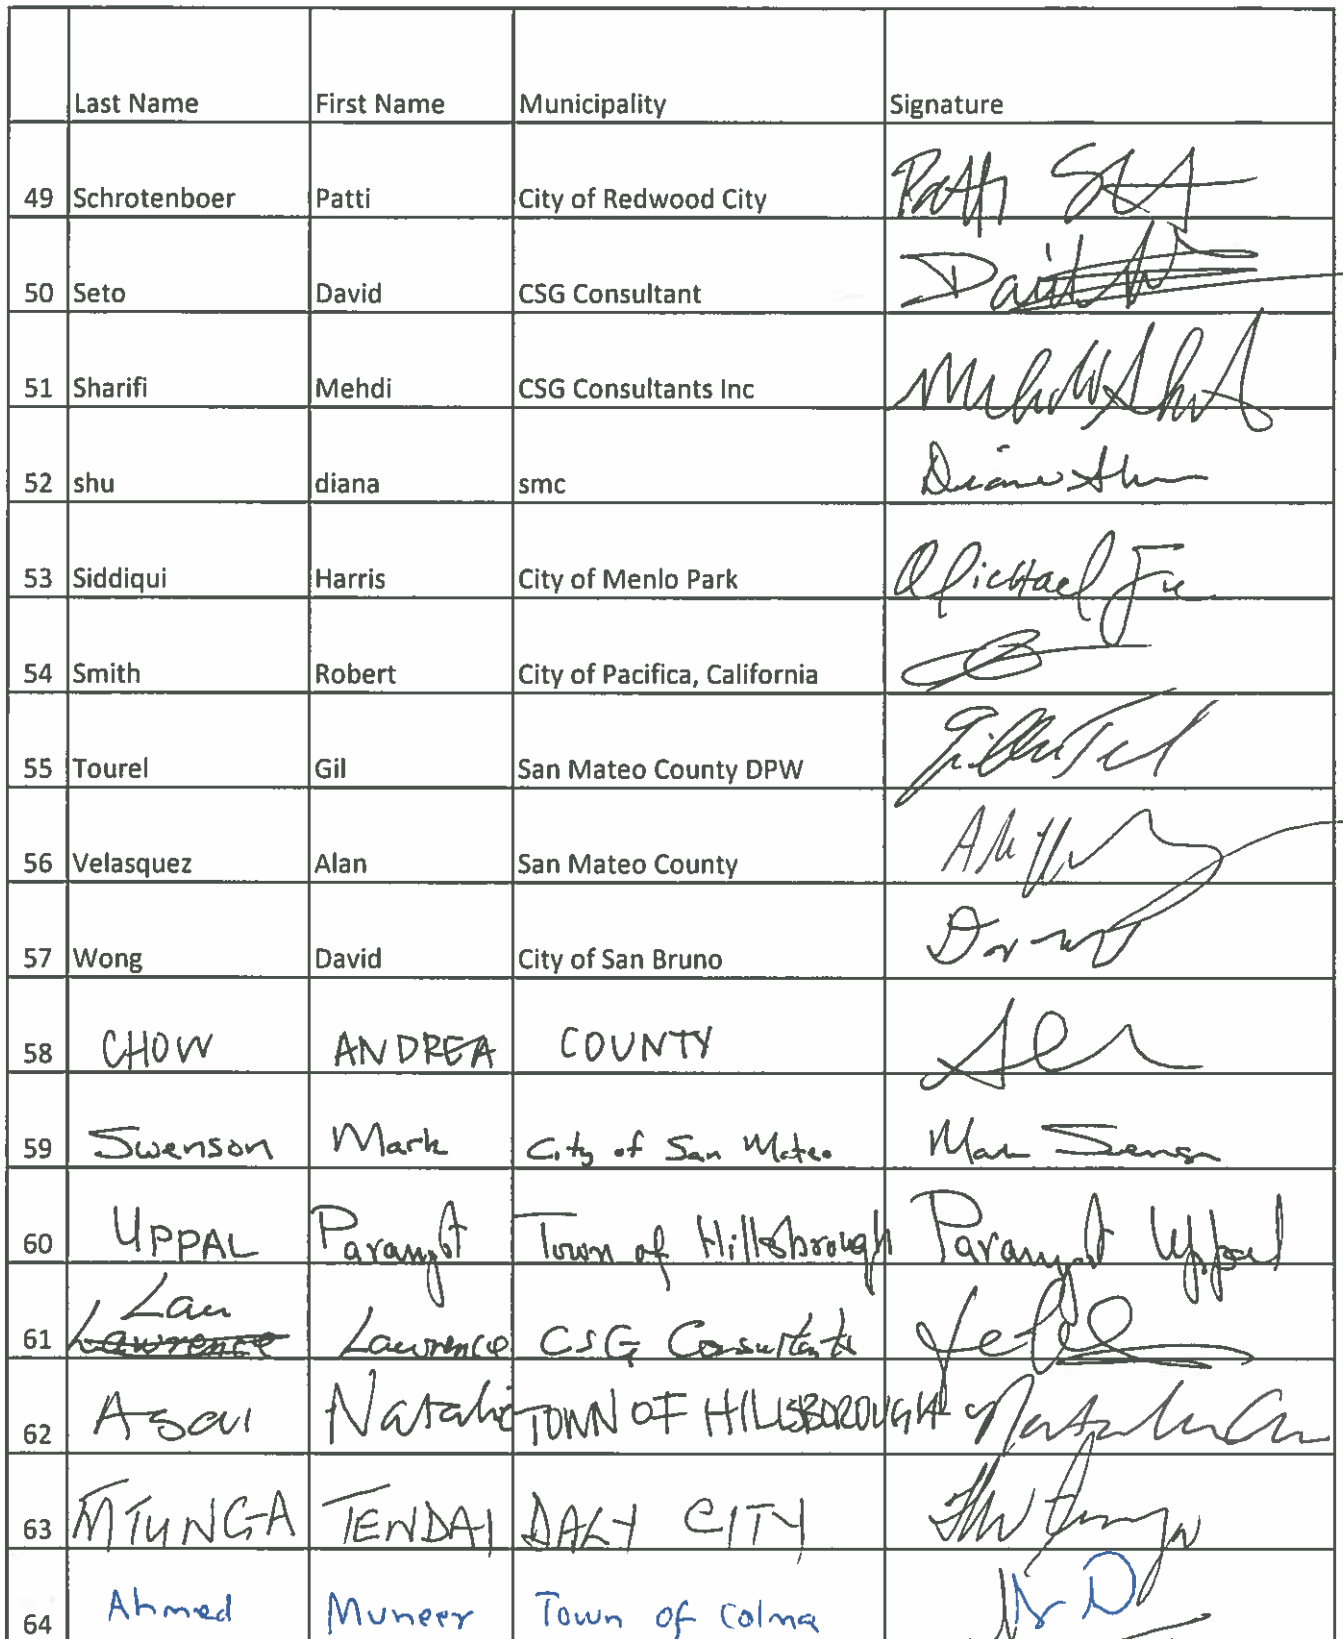 Last Name First Name Municipality Signature
49 Schrotenboer Patti City of Redwood City Patti
50 Seto David CSG Consultant David
51 Sharifi Mehdi CSG Consultants Inc
52 shu diana smc Diana Shu
53 Siddiqui Harris City of Menlo Park Michael Fu
54 Smith Robert City of Pacifica, California
55 Tourel Gil San Mateo County DPW
56 Velasquez Alan San Mateo County
57 Wong David City of San Bruno
58 CHOW ANDREA COUNTY
59 Swenson Mark City of San Mateo Mark Swenson
60 UPPAL Paramjot Town of Hillsborough Paramjot Uppal
Lau
61 Lawrence Lawrence CSG Consultants
62 Asai Natalie TOWN OF HILLSBOROUGH
63 MTUNGA TENDAI DALY CITY
64 Ahmed Muneer Town of Colma